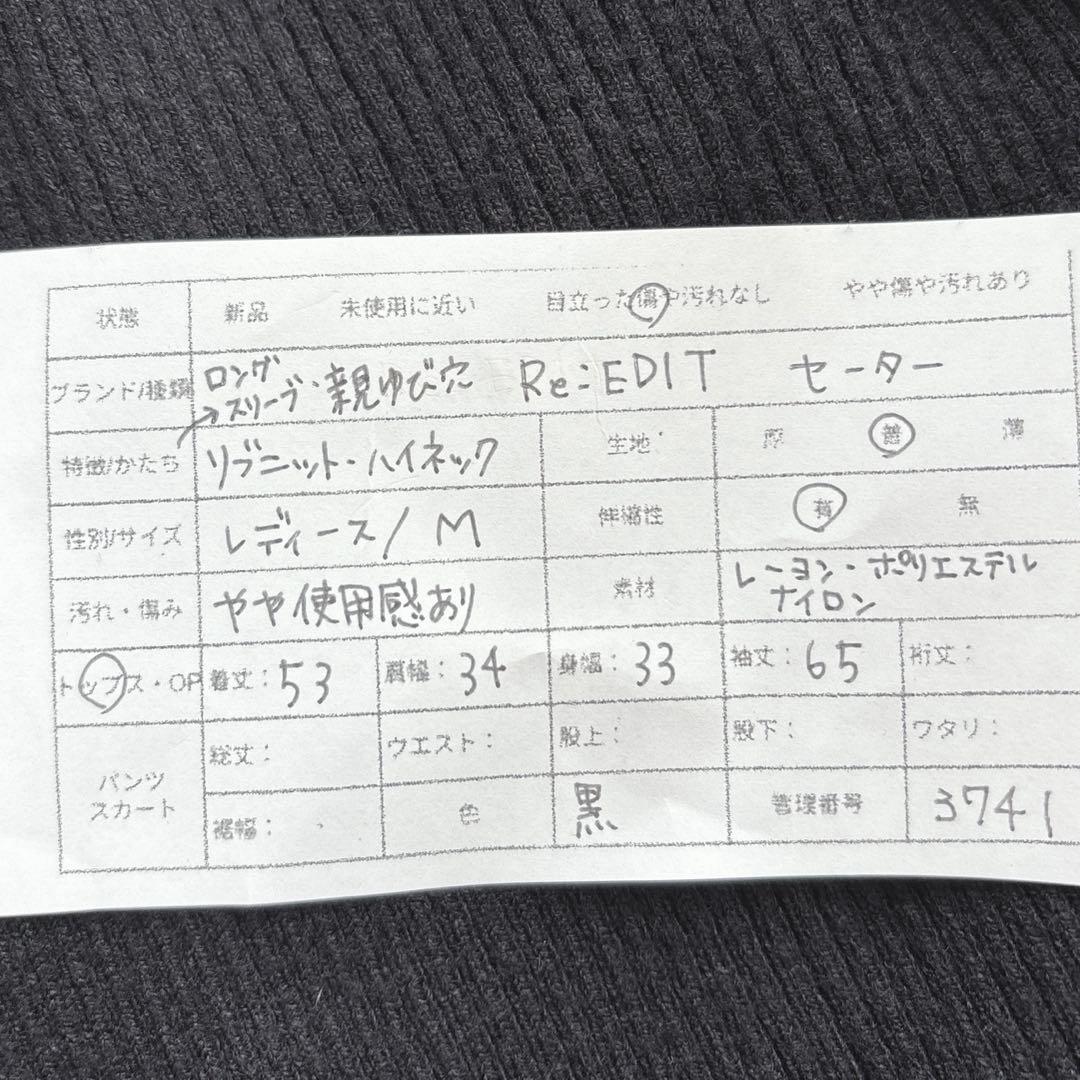 状態 新品 未使用に近い 目立った傷や汚れなし やや傷や汚れあり
ブランド/種類 ロング
→スリーブ・親ゆび穴 Re:EDIT セーター
特徴/かたち リブニット・ハイネック 生地 厚 普 薄
性別/サイズ レディース/M 伸縮性 有 無
汚れ・傷み やや使用感あり 素材 レーヨン・ポリエステル
ナイロン
トップス・OP 着丈:53 肩幅:34 身幅:33 袖丈:65 裄丈:
パンツ
スカート
総丈: ウエスト: 股上: 股下: ワタリ:
裾幅: 色 黒 管理番号 3741